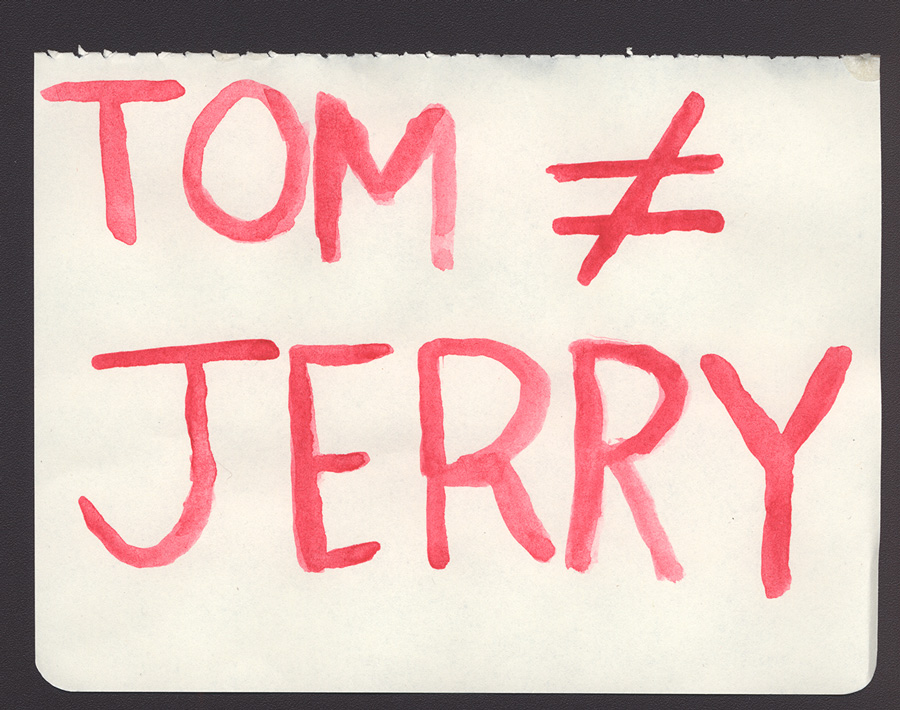 TOM ≠
JERRY